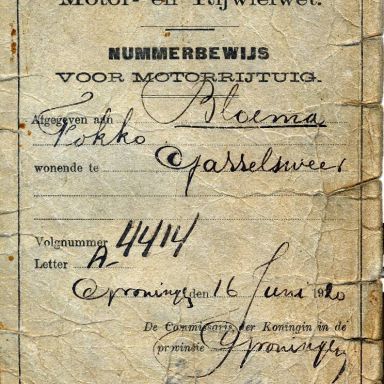 Motor- en Rijwielwet.
NUMMERBEWIJS
VOOR MOTORRIJTUIG.
Afgegeven aan Bloema
Fokko
wonende te Garsselsweer
Volgnummer 4414
Letter A
Groningen den 16 Juni 1920
De Commissaris der Koningin in de
provincie Groningen